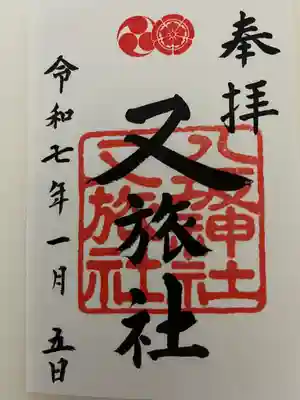 奉拝
八坂神社
又旅社
又旅社
令和七年一月五日